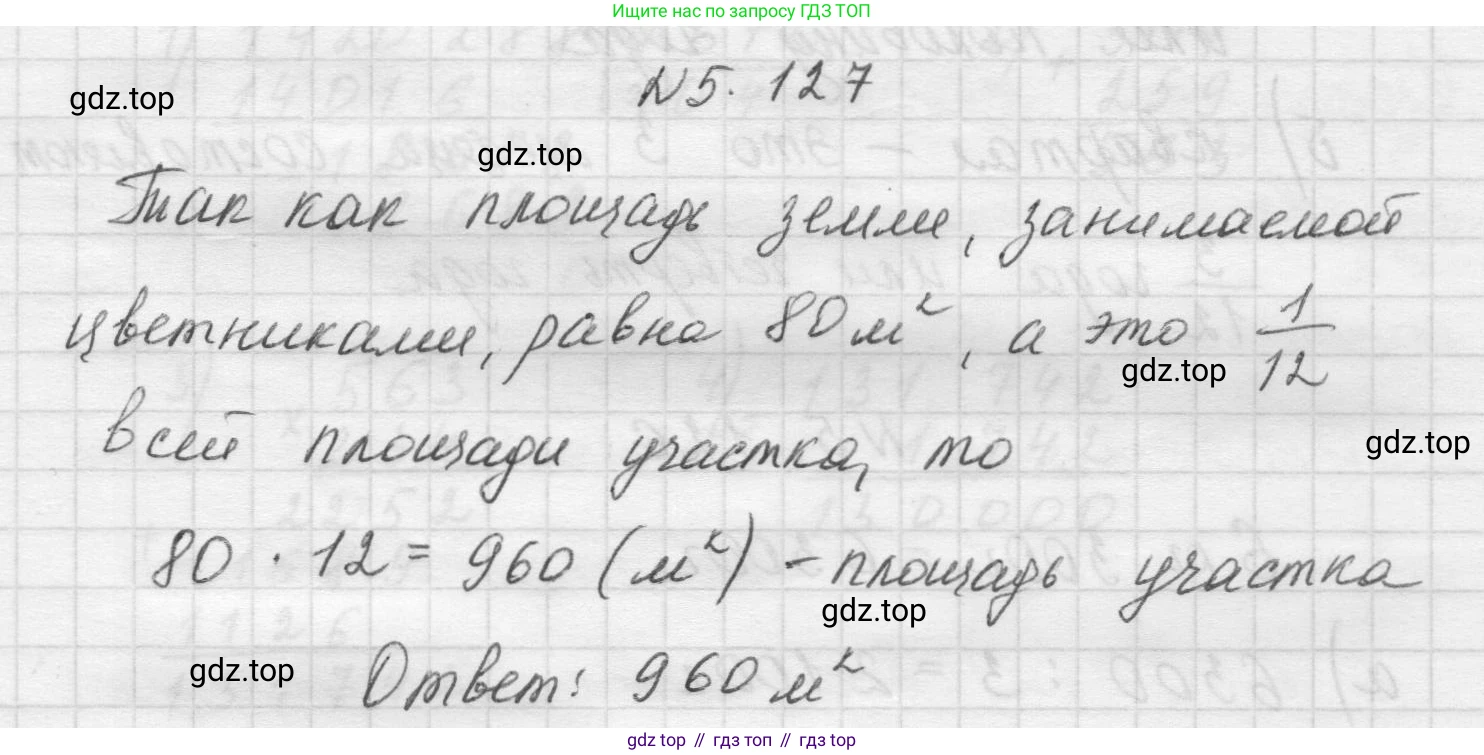 Ищите нас по запросу ГДЗ ТОП
N 5. 127
gdz.top
gdz.top
Так как площадь земли, занимаемой
цветниками, равна 80 м², а это 1/12
gdz.top
всей площади участка, то
gdz.top
80 · 12 = 960 (м²) – площадь участка
gdz.top
gdz.top
Ответ: 960 м²
gdz top // гдз топ // гдз top